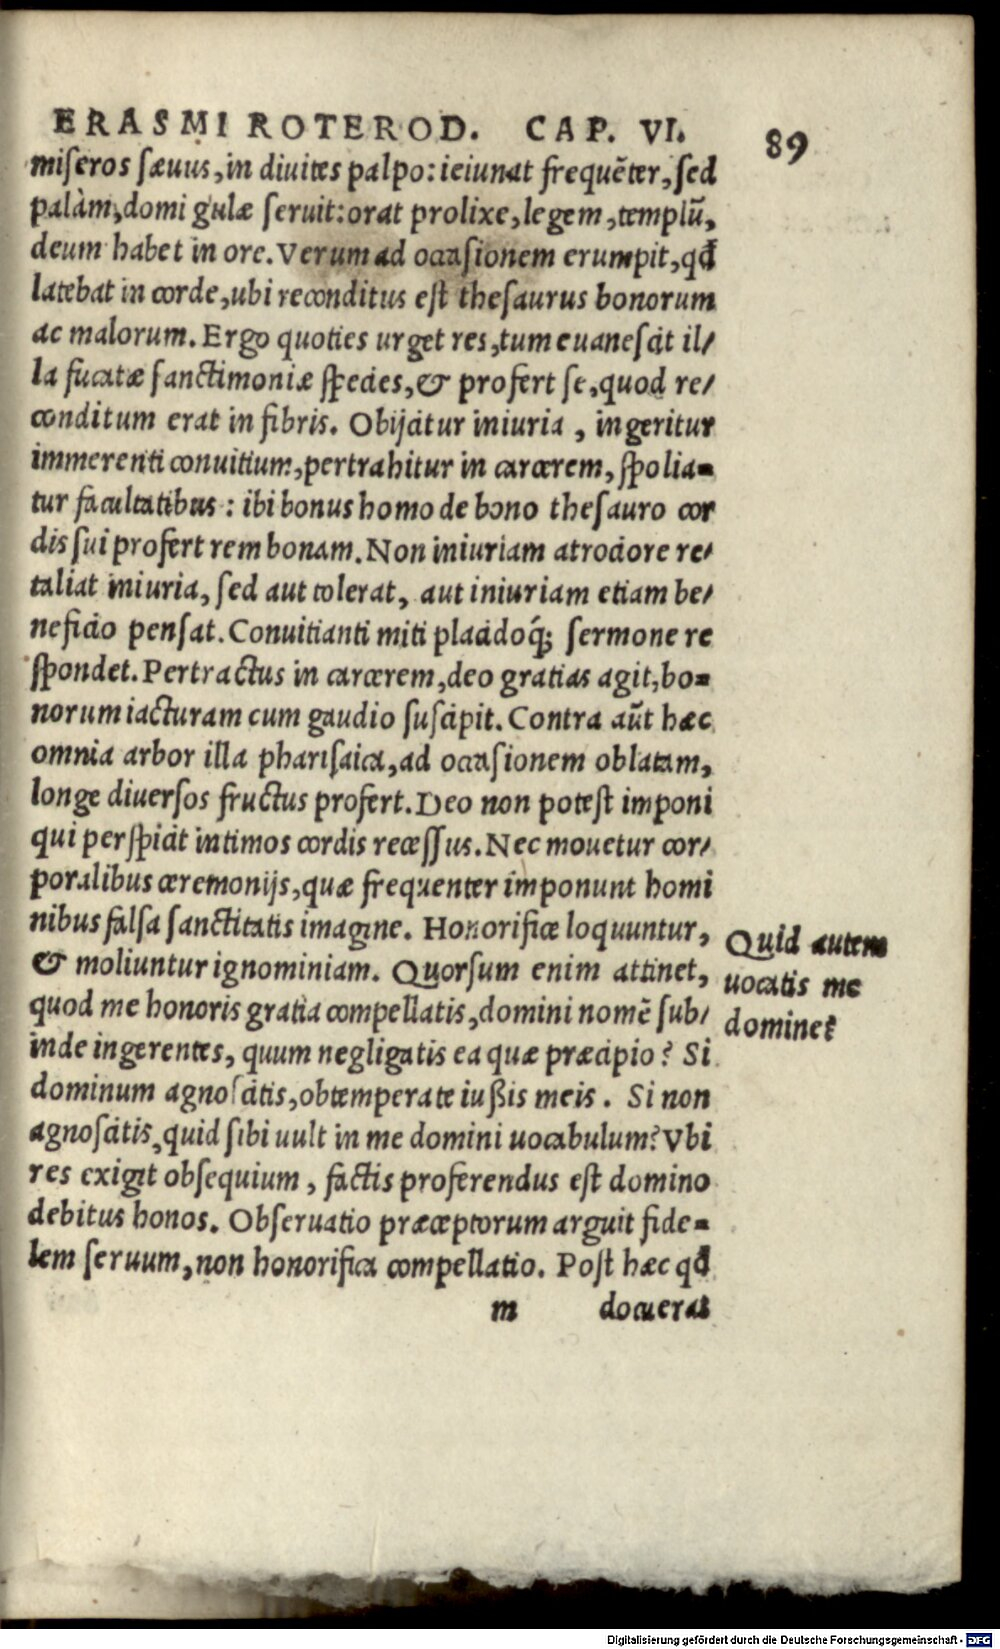 ERASMI ROTEROD. CAP. VI. 89
miseros sæuus, in diuites palpo: ieiunat frequẽter, sed
palàm, domi gulæ seruit: orat prolixe, legem, templũ,
deum habet in ore. Verum ad occasionem erumpit, qđ
latebat in corde, ubi reconditus est thesaurus bonorum
ac malorum. Ergo quoties urget res, tum euanescit il/
la fucatæ sanctimoniæ species, & profert se, quod re/
conditum erat in fibris. Obijcitur iniuria, ingeritur
immerenti conuitium, pertrahitur in carcerem, spolia=
tur facultatibus: ibi bonus homo de bono thesauro cor
dis sui profert rem bonam. Non iniuriam atrociore re/
taliat iniuria, sed aut tolerat, aut iniuriam etiam be/
neficio pensat. Conuitianti miti placidoq́; sermone re
spondet. Pertractus in carcerem, deo gratias agit, bo=
norum iacturam cum gaudio suscipit. Contra aũt hæc
omnia arbor illa pharisaica, ad occasionem oblatam,
longe diuersos fructus profert. Deo non potest imponi
qui perspicit intimos cordis recessus. Nec mouetur cor/
poralibus ceremonijs, quæ frequenter imponunt homi
nibus falsa sanctitatis imagine. Honorifice loquuntur,
& moliuntur ignominiam. Quorsum enim attinet,
quod me honoris gratia compellatis, domini nomẽ sub/
inde ingerentes, quum negligatis ea quæ præcipio? Si
dominum agnoscitis, obtemperate iußis meis. Si non
agnoscitis, quid sibi uult in me domini uocabulum? Vbi
res exigit obsequium, factis proferendus est domino
debitus honos. Obseruatio præceptorum arguit fide=
lem seruum, non honorifica compellatio. Post hæc qđ
m docuerat
Quid autem
uocatis me
domine?
Digitalisierung gefördert durch die Deutsche Forschungsgemeinschaft - DFG